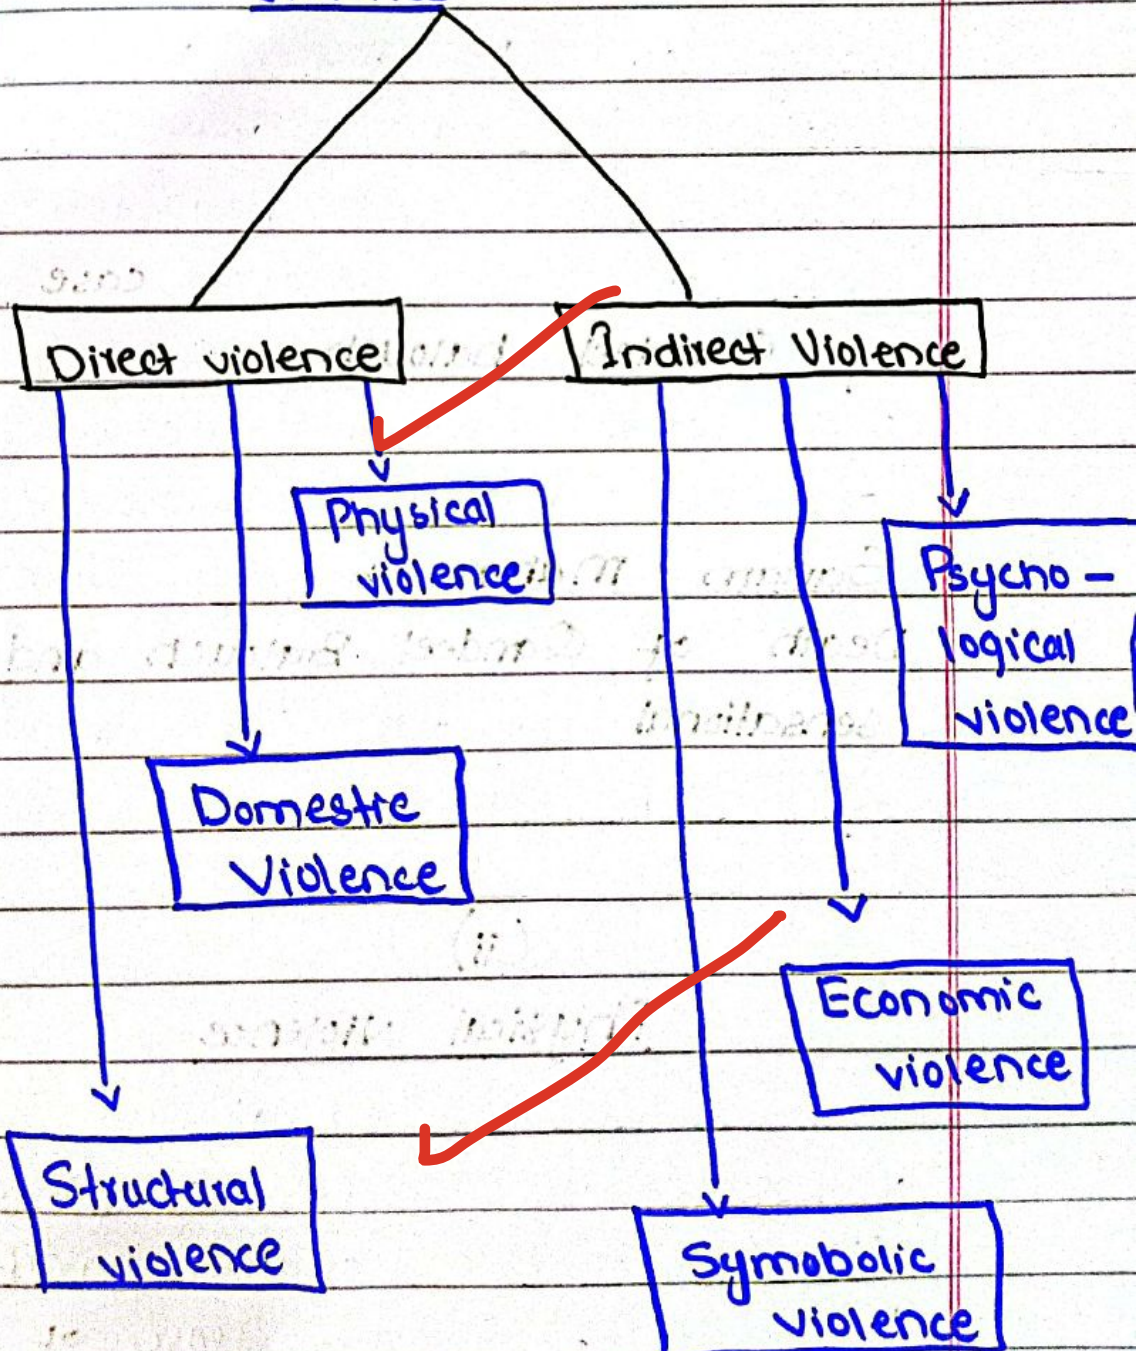 Direct violence
Indirect Violence
Physical
violence
Psycho -
logical
violence
Domestic
Violence
Economic
violence
Structural
violence
Symobolic
violence